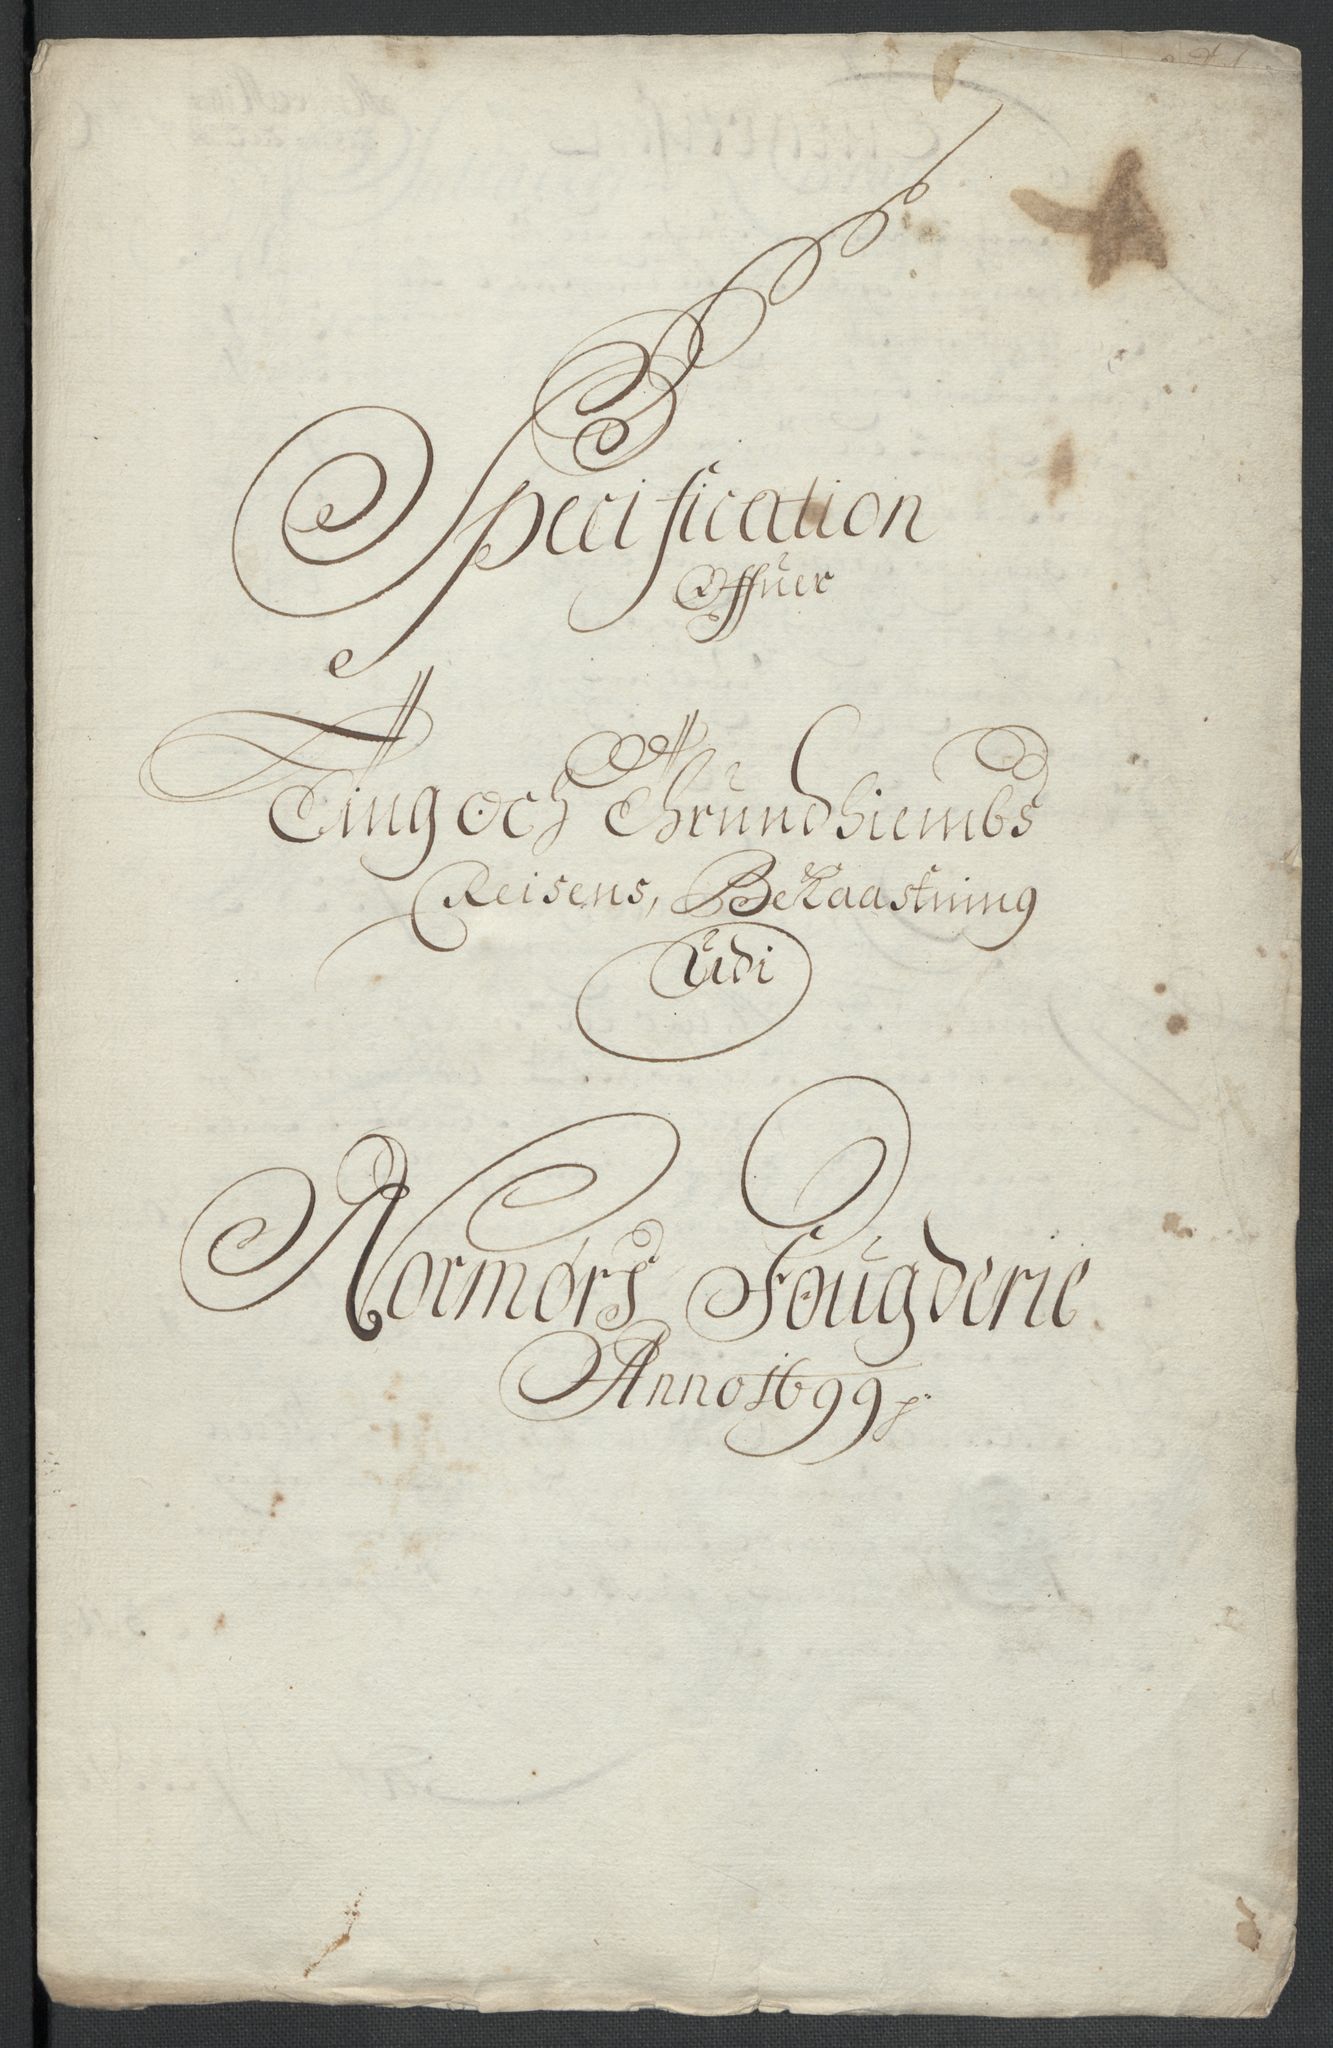 Specification
Offuer
Ting och Thrundhiembs
Reisens, Bekaastning
Udi
Normørs Fougderie
Anno 1699